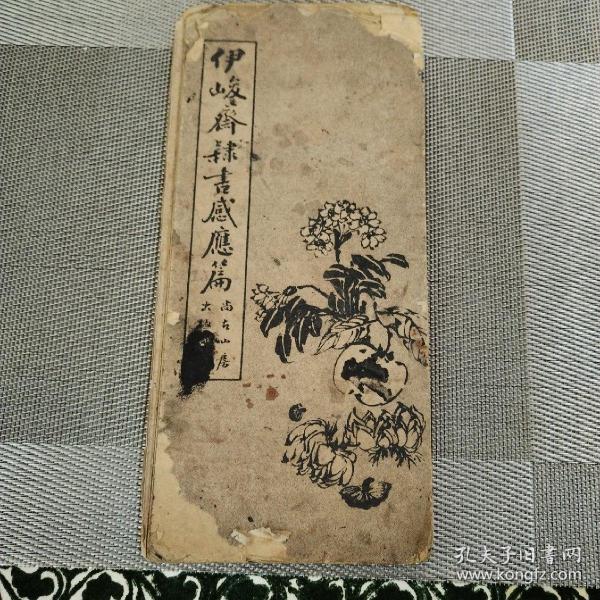 伊峻斋隸書感應篇
尚古山房
大
孔夫子旧書网
www.kongfz.com